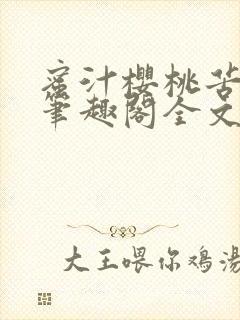 蜜汁樱桃苦
笔趣阁全文
大王喂你鸡汤